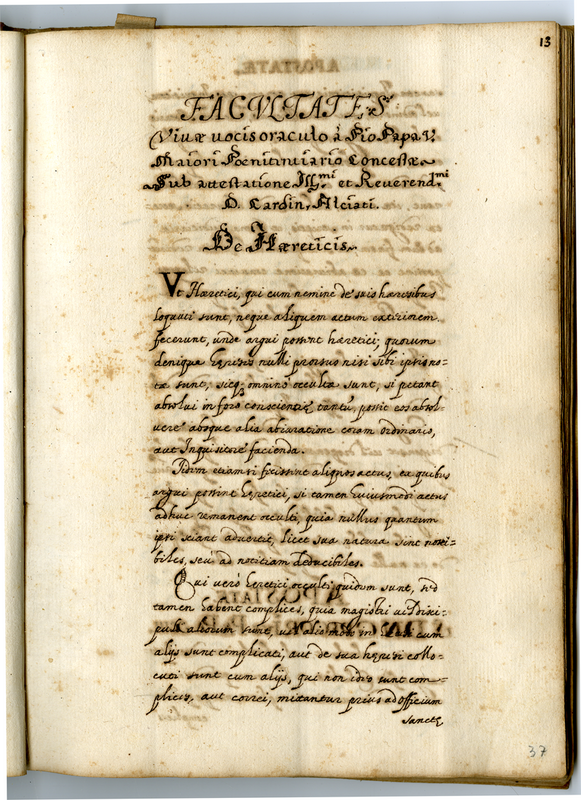 13
FACVLTATES
Viuæ uocis oraculo à Pio Papa V.
Maiori Pœnitentiario Concessæ
Sub attestatione Ill.mi et Reuerend.mi
D. Cardin. Alciati.
De Hæreticis.
Vt Hæretici, qui cum nemine de suis hæresibus
loquuti sunt, neque aliquem actum exteriorem
fecerunt, unde argui possint hæretici; quorum
denique hęreses nulli prorsus nisi sibi ipsis no=
tæ sunt, sicq. omnino occultæ sunt, si petant
absolui in foro conscientię tantu, possit eos absol=
uere absque alia abiuratione coram ordinario,
aut Inquisitore facienda.
Idem etiam si fecissent aliquos actus, ex quibus
argui possint hęretici, si tamen huiusmodi actus
adhuc remanent occulti, quia nullus quantum
ipsi sciant aduertit, licet sua natura sint noti=
biles, seu ad notitiam deducibiles.
Qui uerò hęretici occulti quidem sunt, sed
tamen habent complices, quia magistri uel Disci=
puli aliorum sunt, uel alio modo in hęresi cum
alijs sunt complicati, aut de sua hęresi collo=
cuti sunt cum alijs, qui non ideo sunt com=
plices, aut correi, mittantur prius ad Officium
Sanctę
37